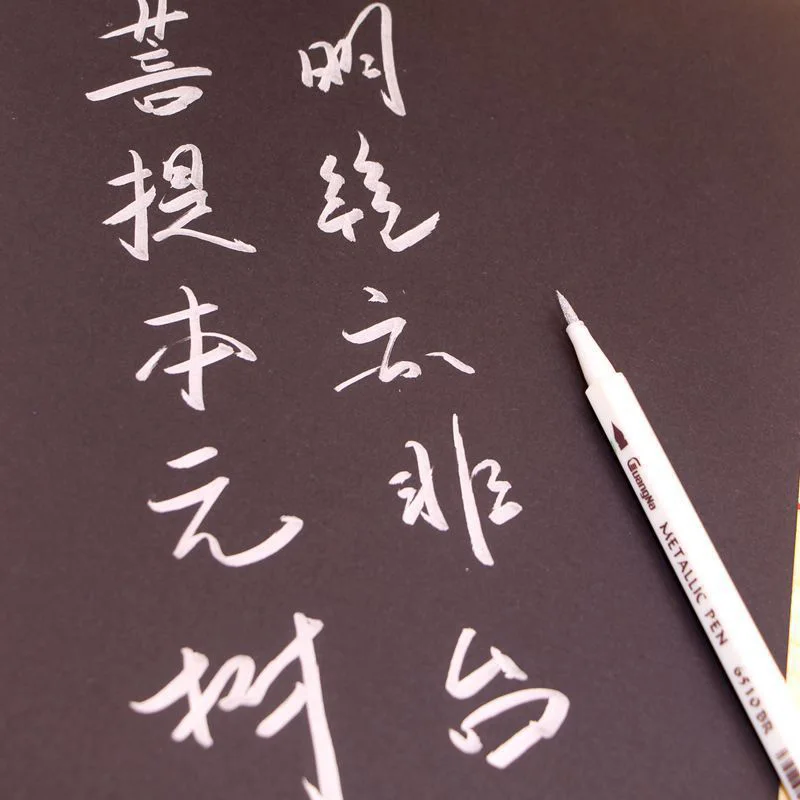 菩提本无树
明镜亦非台
GuangNa METALLIC PEN 6510BR